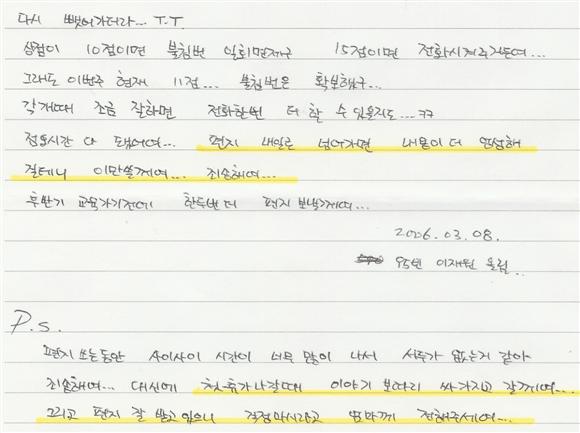 다시 뺏어가더라... T.T
상점이 10점이면 불침번 일회면제구 15점이면 전화시켜주거든여...
그래도 이번주 현재 11점... 불침번은 확보했구...
각개때 조금 잘하면 전화한번 더 할 수 있을지도...ㅋㅋ
점호시간 다 됐어여... 편지 내일로 넘어가면 내용이 더 엉성해
질테니 이만쓸께여... 죄송해여...
후반기 교육가기전에 한두번 더 편지 보낼께여...
2006. 03. 08.
95번 이재원 올림...
P.s.
편지 쓰는동안 사이사이 시간이 너무 많이 나서 서두가 없는거 같아
죄송해여... 대신에 첫휴가나갈때 이야기 보따리 싸가지고 갈께여...
그리고 편지 잘 받고있으니 걱정마시라고 엄마께 전해주세여...